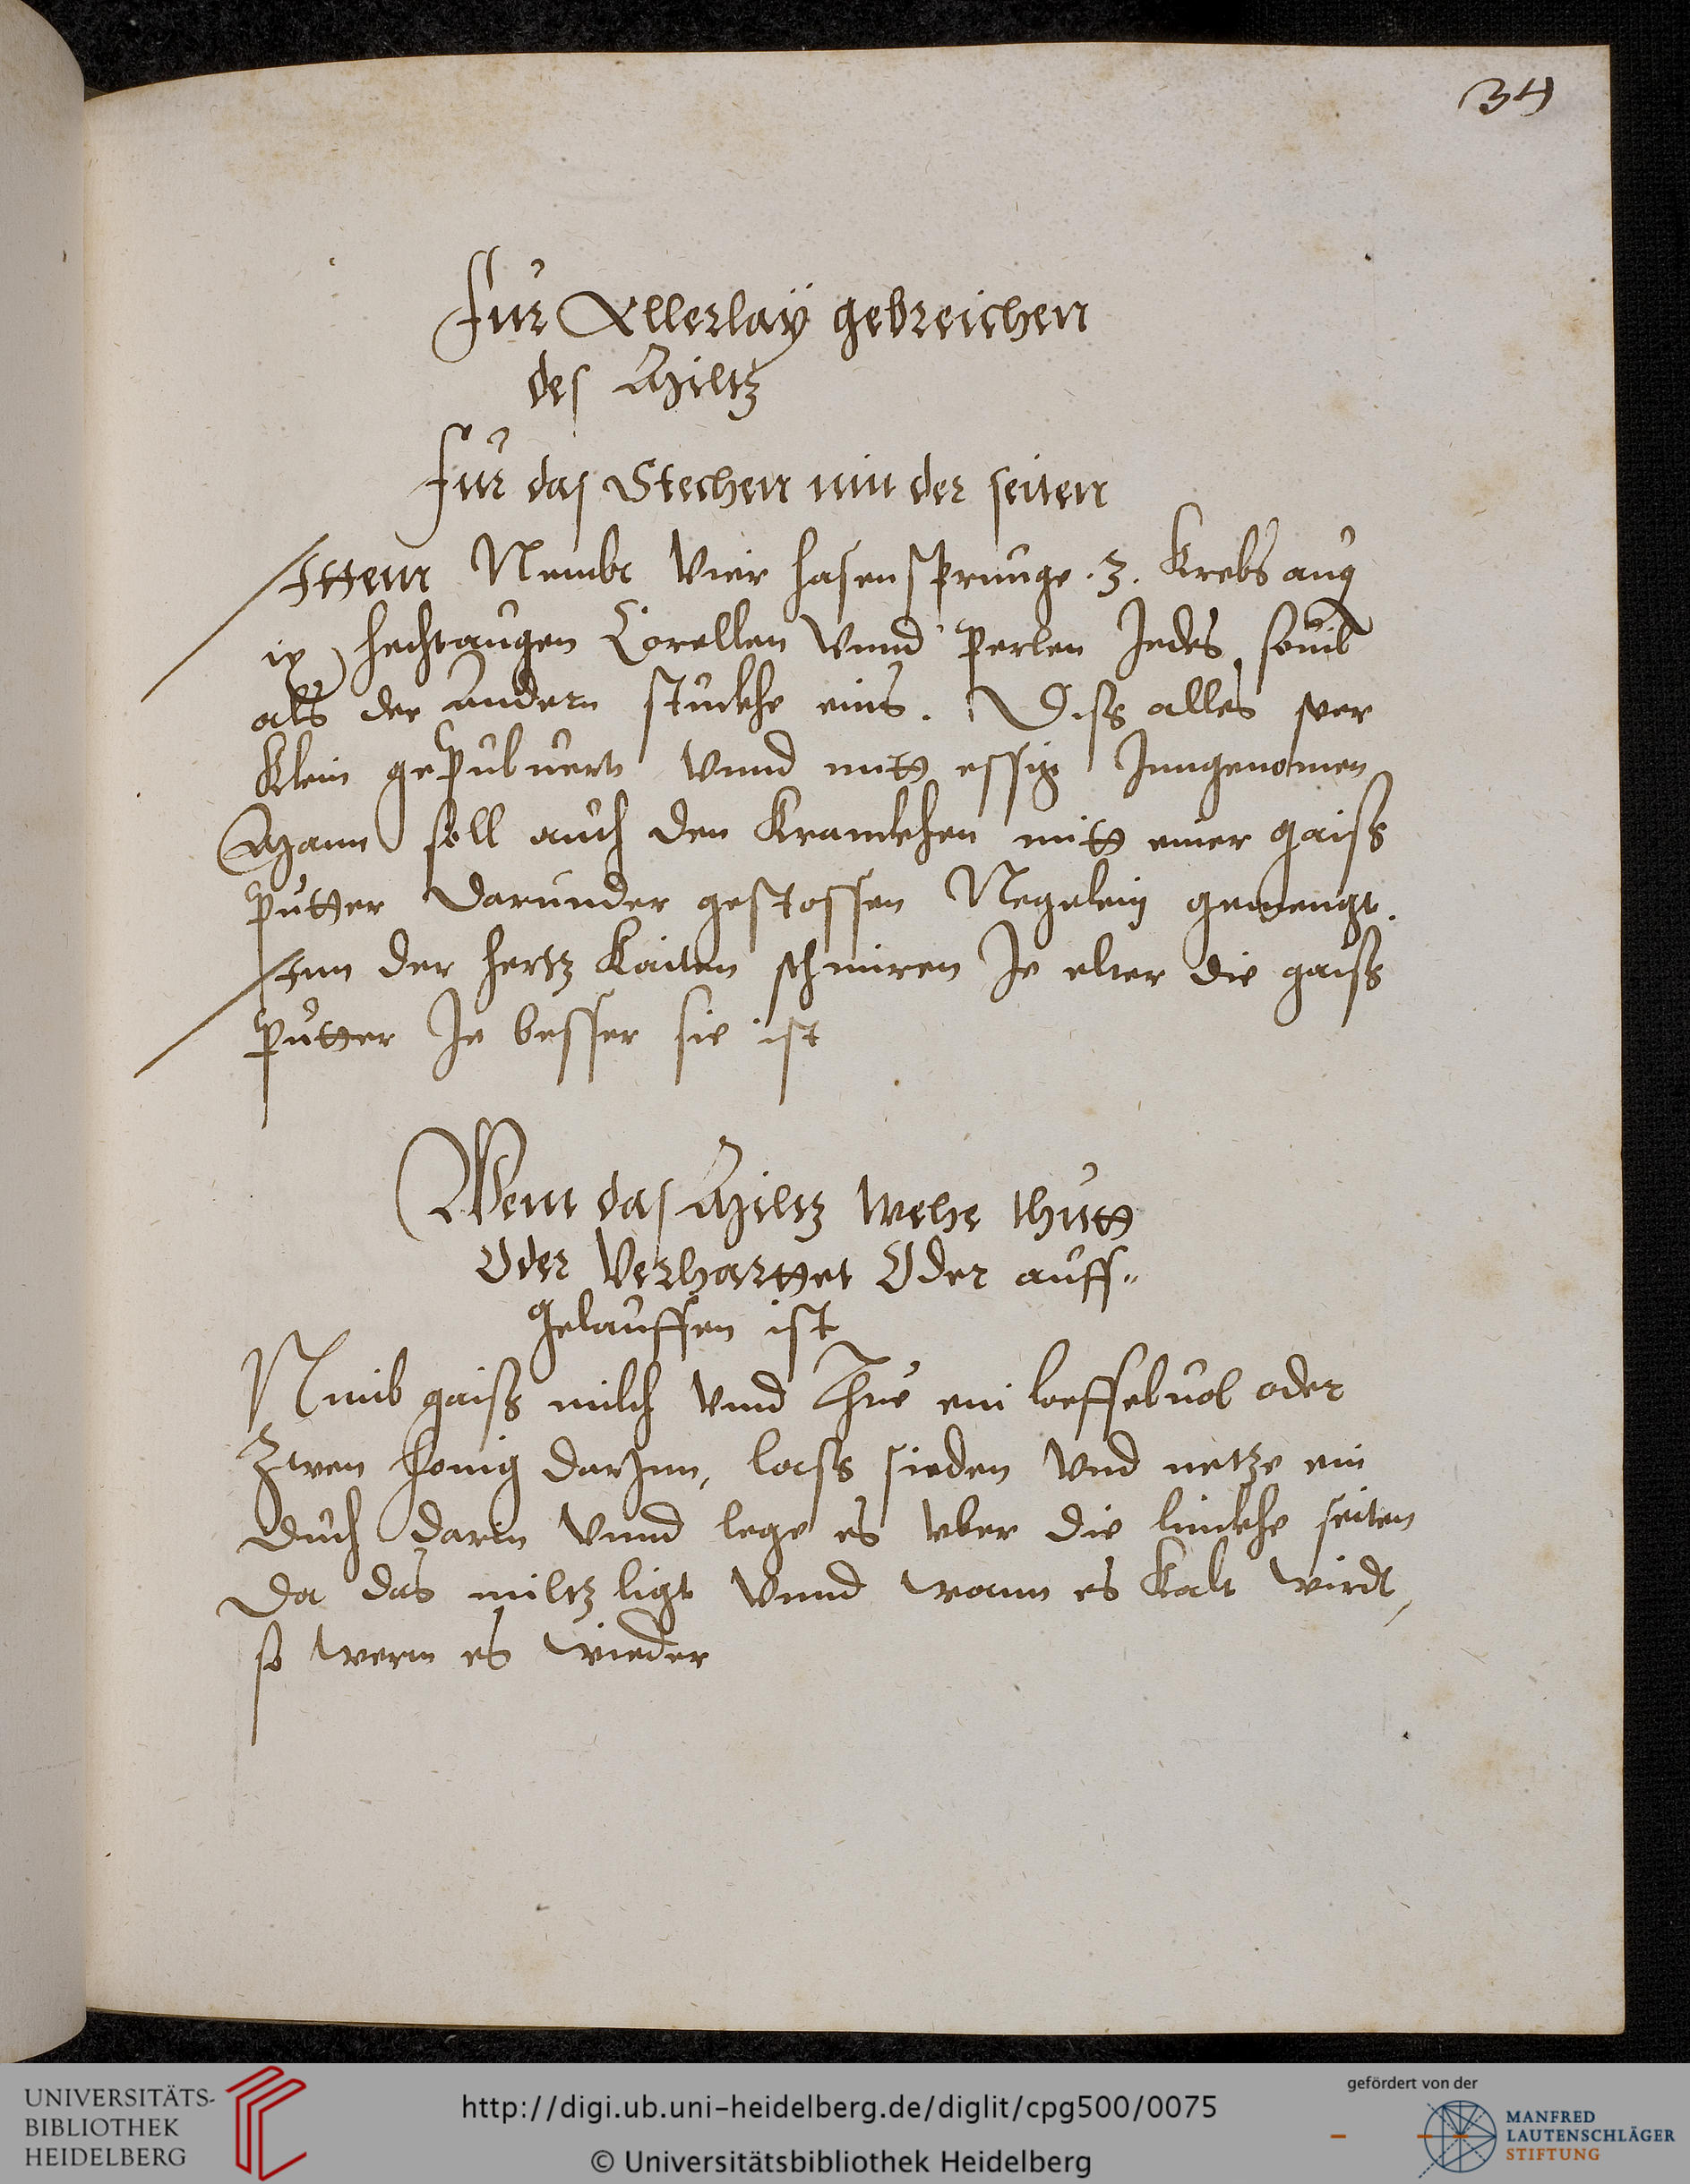 34
Fur Allerlaÿ gebreichen
des Miltz
Fur das Stechen inn der seiten
Ittem Nembt Vier hasensprunge .3. Krebs aug
ix hechtaugen Corellen Vnnd perlen Jedes souil
als der andern stuckhe eins. Diss alles
Klein gepuluert Vnnd mitt essig Inngenomen
Mann soll auch den Kranckhen mitt einer gaiss
putter darunder gestossen Negelein gemengt.
Inn der hertz Kaiten schmiren Je elter die gaiss
putter Je besser sie ist
Wem das Miltz wehe thutt
Oder Verharttet Oder auff-
gelauffen ist
Nimb gaiss milch vnnd Thue ein loeffeluol oder
Zwen honig darJnn, lass sieden vnd netze ein
duch darin Vnnd lege es vber die linckhe seiten
da das miltz ligt Vnnd wann es Kalt wirdt,
so werm es wieder
UNIVERSITÄTS-
BIBLIOTHEK
HEIDELBERG
http://digi.ub.uni-heidelberg.de/diglit/cpg500/0075
© Universitätsbibliothek Heidelberg
gefördert von der
MANFRED
LAUTENSCHLÄGER
STIFTUNG